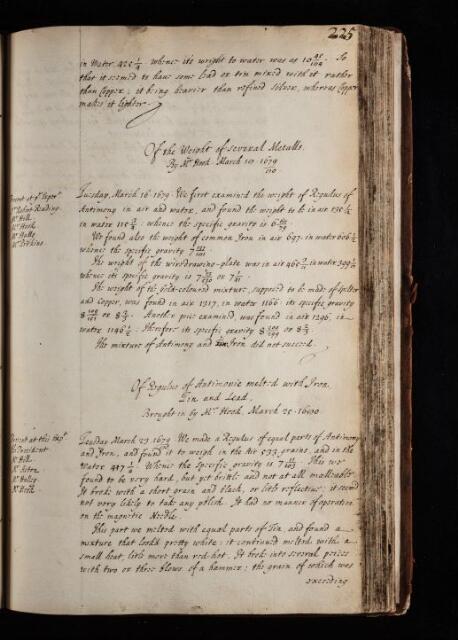 225
in Water 425 1/4 whence its weight to water was as 10 . So
that it seemed to have some lead or tin mixed with it rather
than Copper; it being heavier than refined Silver, whereas Copper
makes it lighter.
Of the Weight of several Metalls.
By Mr. Hook. March 1679
Present at ye Exper.
Mr. Hill
Mr. Hook
Tuesday, March 16. 1679. We first examined the weight of Regulus of
Antimony in air and water, and found the weight to be in air
in water : whence the specific gravity is 6
We found also the weight of common Iron in air 697. in water 606
whence the specific gravity 7
The weight of the wiredrawing-plate was in air in water
whence its specific gravity is 7 or 7
The weight of the Gold-coloured mixture, supposed to be made of spelter
and Copper, was found in air 1317, in water 1166: its specific gravity
8 or 8 . Another piece examined, was found in air 1296, in
water 1146 : Therefore its specific gravity 8 or 8
The mixture of Antimony and Iron did not succeed.
Of Regulus of Antimonie melted with Iron,
Tin and Lead,
Brought in by Mr. Hook March 25. 1680.
Present at this Exp.
the President
Mr. Hill
Mr. Hook
Tuesday March 23. 1679. We made a Regulus of equal parts of Antimony
and Iron, and found it to weigh in the Air 533 grains, and in the
Water 447 . Whence the specific gravity is . This we
found to be very hard, but yet brittle and not at all malleable.
It broke with a short grain and black, or little reflective; it seemd
not very likely to take any polish. It had no manner of operation
on the magnetic Needle.
This part we melted with equal parts of Tin, and found a
mixture that lookd pretty white: it continued melted with a
small heat, little more than red-hot. It broke into several peices
with two or three blows of a hammer: the grain of which was
exceeding